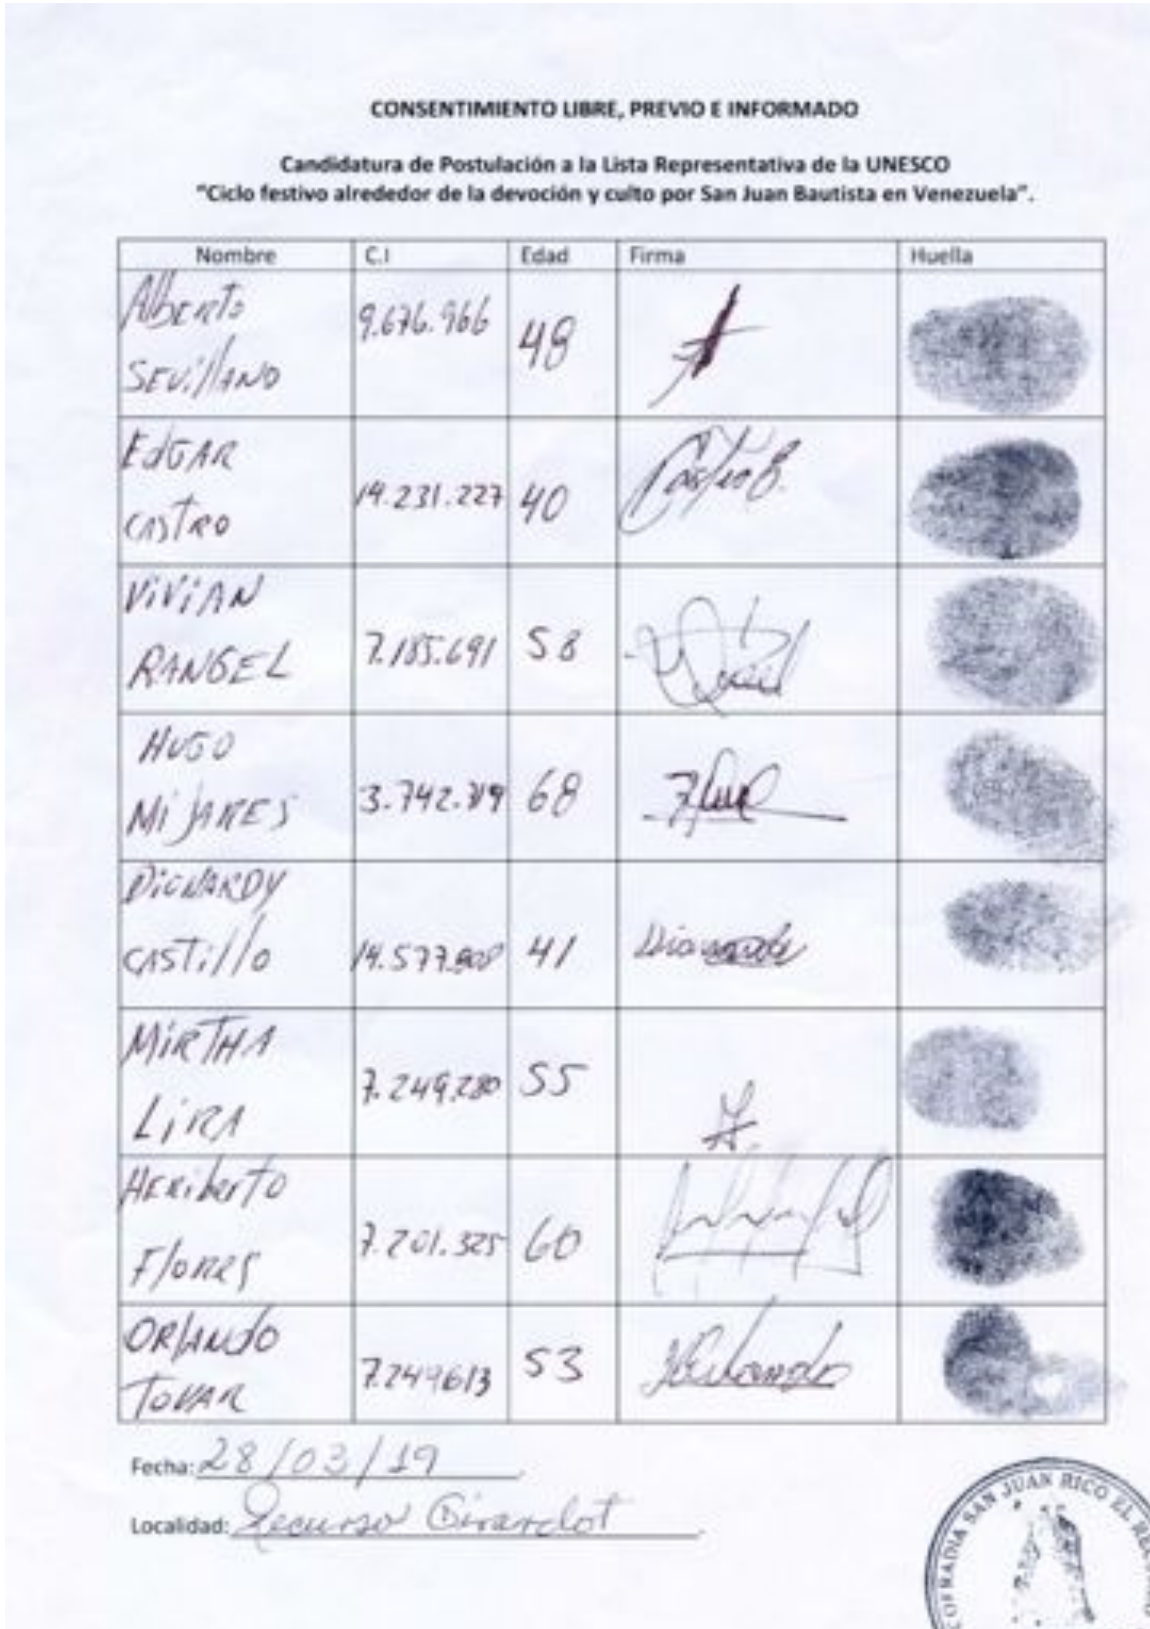 CONSENTIMIENTO LIBRE, PREVIO E INFORMADO
Candidatura de Postulación a la Lista Representativa de la UNESCO
"Ciclo festivo alrededor de la devoción y culto por San Juan Bautista en Venezuela".
Nombre C.I Edad Firma Huella
Alberto
Sevillano 9.676.966 48
Edgar
Castro 14.231.227 40 Castro E.
Vivian
Rangel 7.185.691 58
Hugo
Mijares 3.742. 68
Castillo 14.577. 41
Mirtha
Lira 7.249.280 55
Heriberto
Flores 7.201.325 60
Orlando
Tovar 7.249613 53
Fecha: 28/03/19
Localidad: Recurso Girardot
COFRADIA SAN JUAN RICO EL